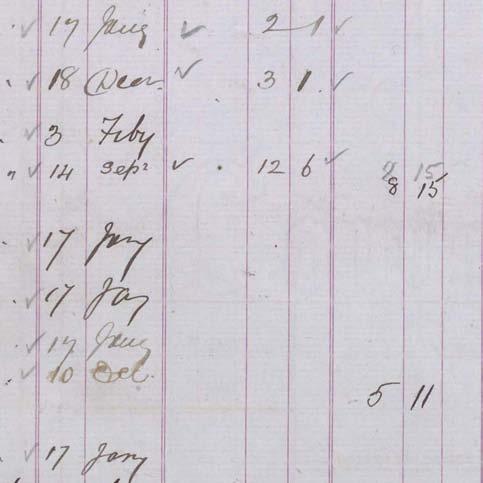 ✓ 17 Jany ✓ 2 1 ✓
✓ 18 Decr. ✓ 3 1 ✓
✓ 3 Feby
" ✓ 14 Sepr ✓ 12 6 ✓ 8 15
8 15
✓ 17 Jany
✓ 17 Jay
✓ 17 Jany
✓ 10 Oct.
5 11
✓ 17 Jany